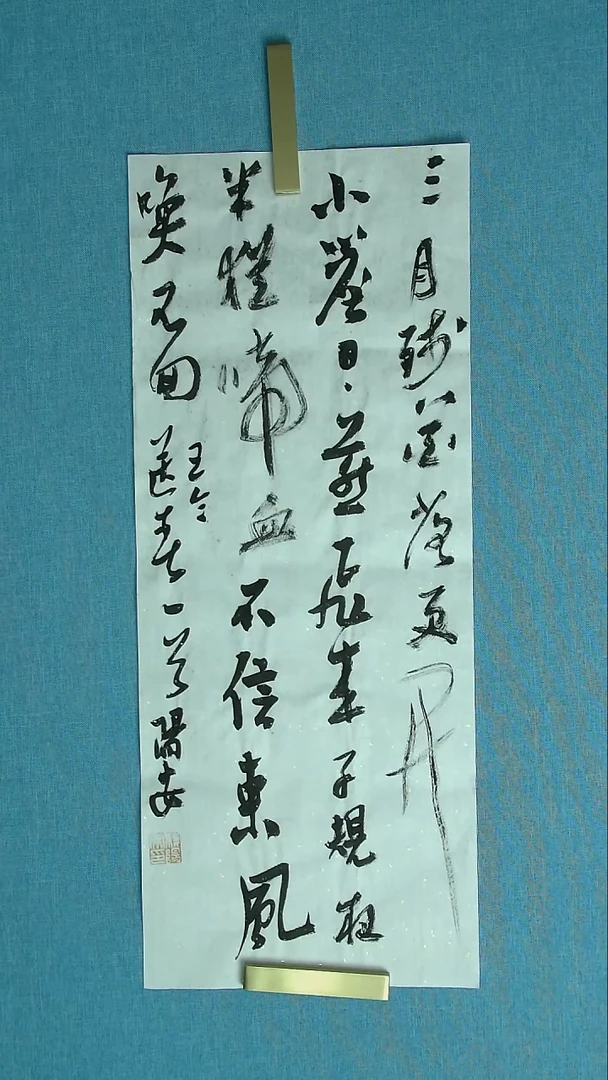 三月殘花落更開
小簷日日燕飛來子規夜
半猶啼血不信東風
喚不回
王令
送春一首